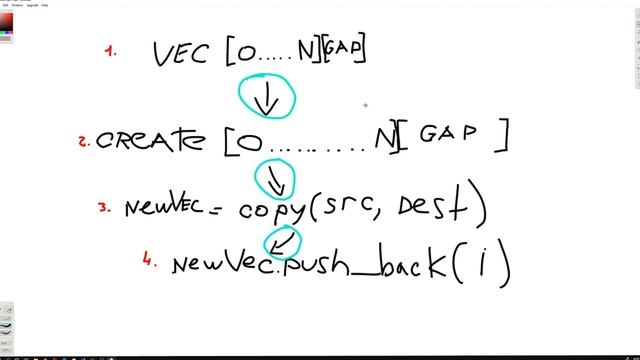 1. VEC [0.....N][GAP]
2. CREATE [0..........N][ GAP ]
3. NewVec = copy(src, Dest)
4. NewVec.push_back(i)